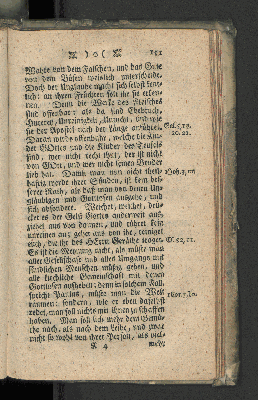 )o( 151
Wahre von dem Falschen, und das Gute
von dem Bösen weißlich unterscheide.
Doch der Unglaube macht sich selbst kennt-
lich: an ihren Früchten solt ihr sie erken-
nen. Denn die Werke des Fleisches
sind offenbar: als da sind Ehebruch,
Hurerey, Unreinigkeit, Unzucht, und wie
sie der Apostel nach der Länge anführet. Gal. 5, 19.
Daran wirds offenbahr, welche die Kin- 20. 21.
der Gottes und die Kinder des Teufels
sind, wer nicht recht thut, der ist nicht
von Gott, und wer nicht seinen Bruder
lieb hat. Damit man nun nicht theil- 1 Joh. 3, 10
haftig werde ihrer Sünden, ist kein bes-
serer Rath, als daß man von denen Un-
gläubigen und Gottlosen ausgehe, und
sich absondere. Weichet, weichet, dro-
cket es der Geist Gottes anderweit aus,
ziehet aus von dannen, und rühret kein
unreines an; gehet aus von ihr, reiniget
euch, die ihr des HErrn Geräthe traget. Es. 52, 11.
Es ist die Meynung nicht, als müste man
aller Gesellschaft und alles Umgangs mit
sündlichen Menschen müßig gehen, und
alle kirchliche Gemeinschaft mit denen
Gottlosen aufheben; denn in solchem Fall,
spricht Paulus, müste man die Welt
räumen: sondern, wie er eben daselbst 1 Kor. 5, 10.
redet, man soll nichts mit ihnen zu schaffen
haben. Man soll sich mehr dem Gemü-
the nach, als nach dem Leibe, und zwar
nicht so wohl von ihrer Person, als viel-
K 4 mehr